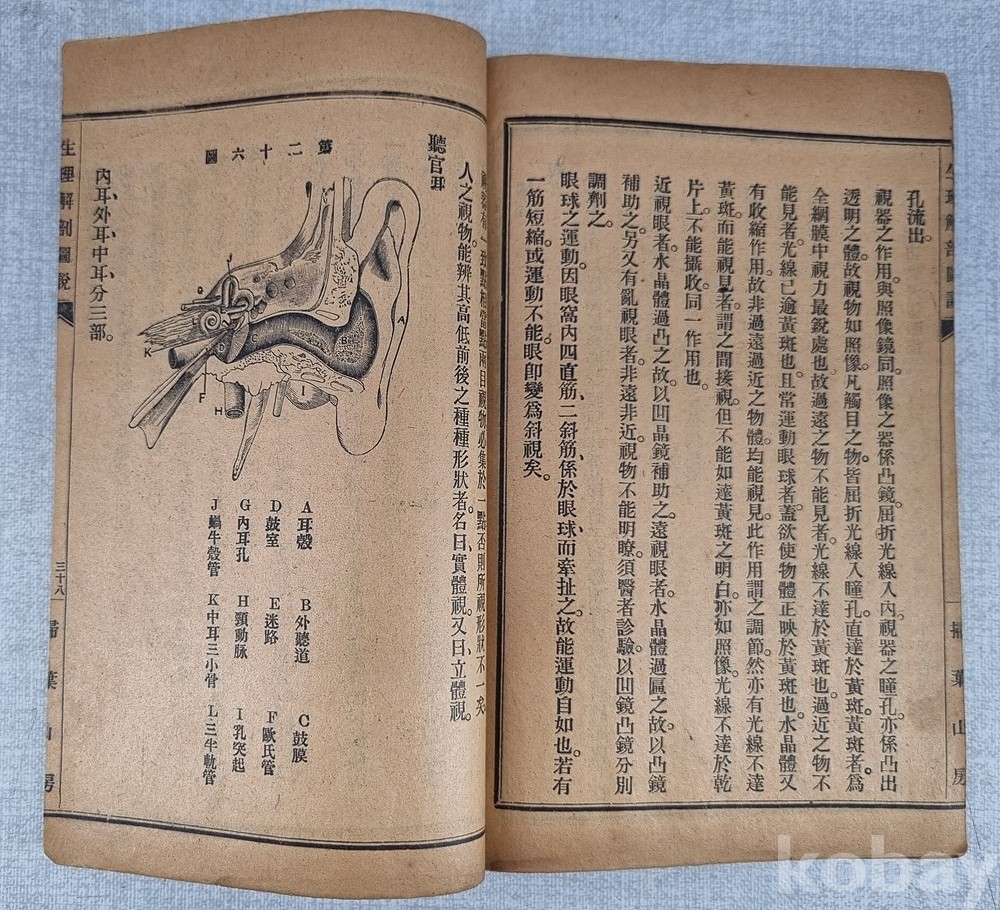 孔流出。
視器之作用。與照像鏡同。照像之器係凸鏡。屈折光線入內。視器之瞳孔。亦係凸出
透明之體。故視物如照像。凡觸目之物。皆屈折光線入瞳孔。直達於黃斑。黃斑者。爲
全網膜中視力最銳處也。故過遠之物不能見者。光線不達於黃斑也。過近之物不
能見者。光線已逾黃斑也。且常運動眼球者。蓋欲使物體正映於黃斑也。水晶體又
有收縮作用。故非過遠過近之物體。均能視見。此作用謂之調節。然亦有光線不達
黃斑。而能視見者。謂之間接視。但不能如達黃斑之明白。亦如照像。光線不達於乾
片上。不能攝收。同一作用也。
近視眼者。水晶體過凸之故。以凹晶鏡補助之。遠視眼者。水晶體過匾之故。以凸鏡
補助之。另又有亂視眼者。非遠非近。視物不能明瞭。須醫者診驗。以凹鏡凸鏡分別
調劑之。
眼球之運動。因眼窩內四直筋、二斜筋、係於眼球、而牽扯之。故能運動自如也。若有
一筋短縮。或運動不能。眼卽變爲斜視矣。
掃葉山房
兩目視物。必集於一點。否則所視形狀不一矣
人之視物。能辨其高低前後之種種形狀者。名曰實體視。又曰立體視。
聽官 耳
第二十六圖
A B C D F G H I K
A 耳殼 B 外聽道 C 鼓膜
D 鼓室 E 迷路 F 歐氏管
G 內耳孔 H 頸動脉 I 乳突起
J 蝸牛殼管 K 中耳三小骨 L 三半軌管
內耳、外耳、中耳、分三部。
生理解剖圖說
三十八
掃葉山房
kobay